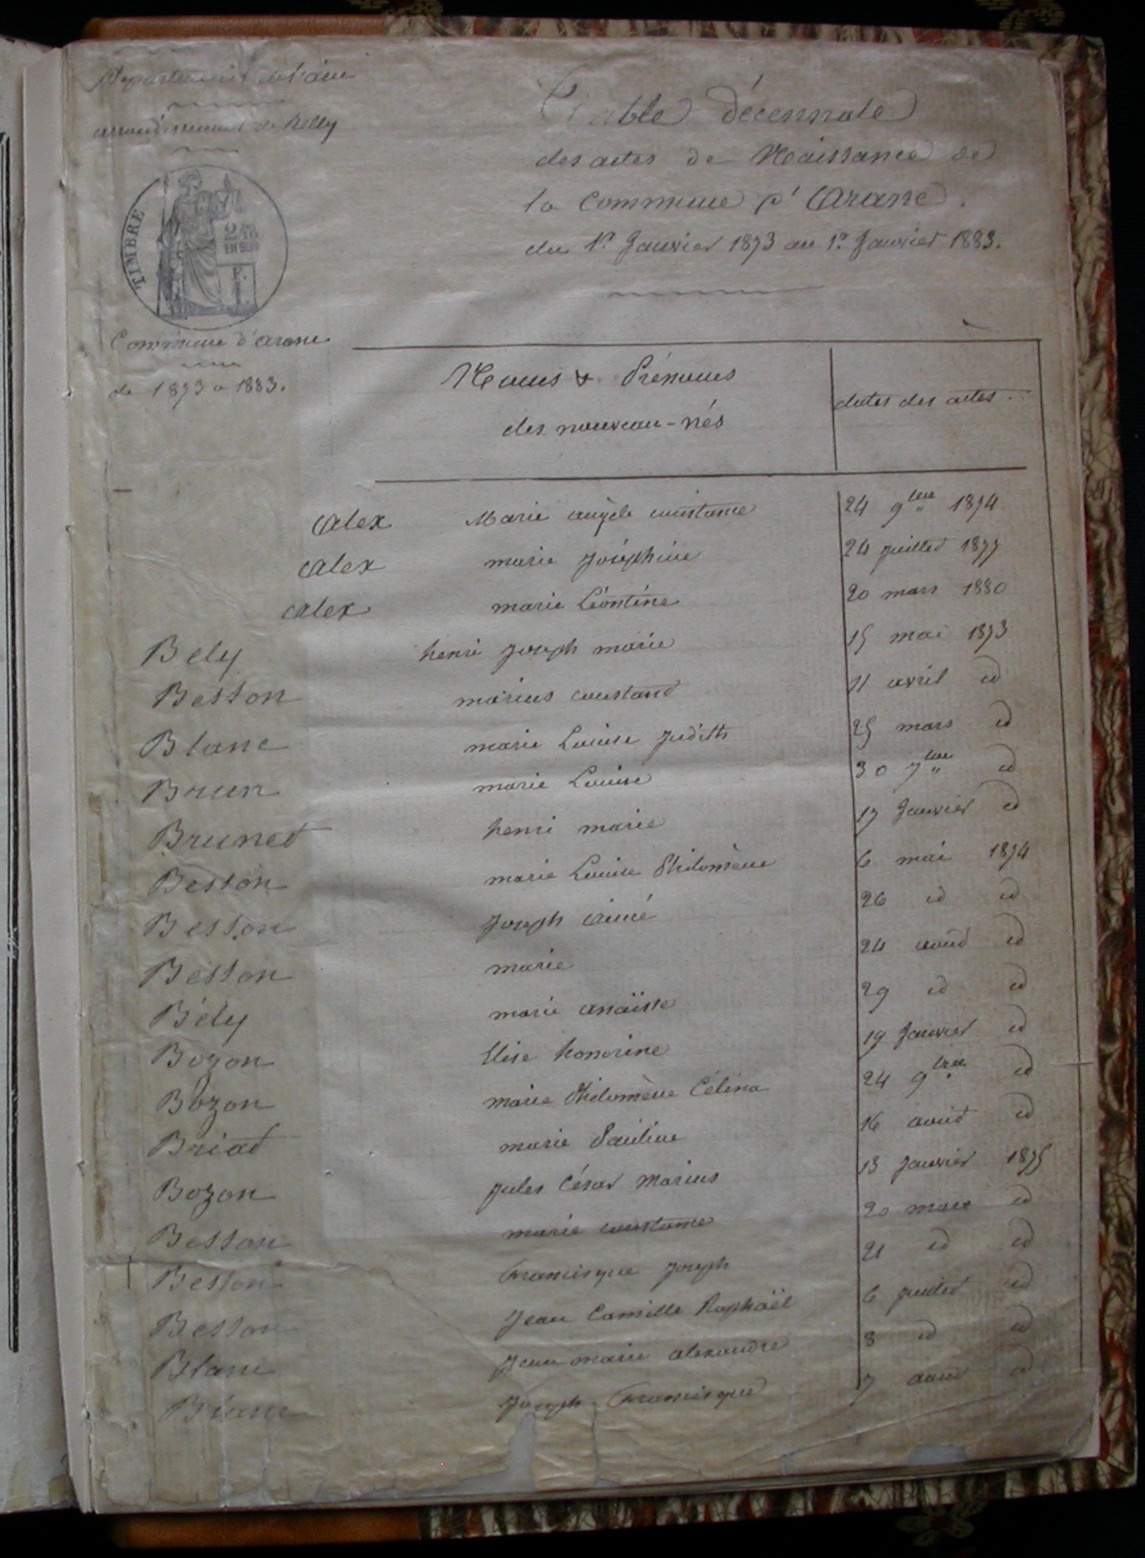 Département de l'ain
arrondissement de Belley
TIMBRE
Commune d'aranc
de 1873 a 1883.
Table décennale
des actes de Naissance de
la Commune d'Aranc.
du 1er Janvier 1873 au 1er Janvier 1883.
Noms & Prénoms
des nouveau-nés
dates des actes.
alex Marie angèle constance 24 9bre 1874
alex marie Joséphine 24 juillet 1877
alex marie Léontine 20 mars 1880
Bely henri Joseph marie 15 mai 1873
Besson marius constant 11 avril id
Blanc marie Louise Judith 25 mars id
Brun marie Louise 30 7bre id
Brunet henri marie 17 Janvier id
Besson marie Louise Philomène 6 mai 1874
Besson Joseph aimé 26 id id
Besson marie 24 aout id
Bély marie anaïsse 29 id id
Bozon Elise honorine 19 Janvier id
Bozon marie Philomène Célina 24 9bre id
Briat marie Pauline 16 aout id
Bozon Jules César Marius 13 Janvier 1875
Besson marie constance 20 mars id
Besson Francisque Joseph 21 id id
Besson Jean Camille Raphaël 6 juillet id
Blanc Jean marie alexandre 8 id id
Blanc Joseph Francisque 7 aout id